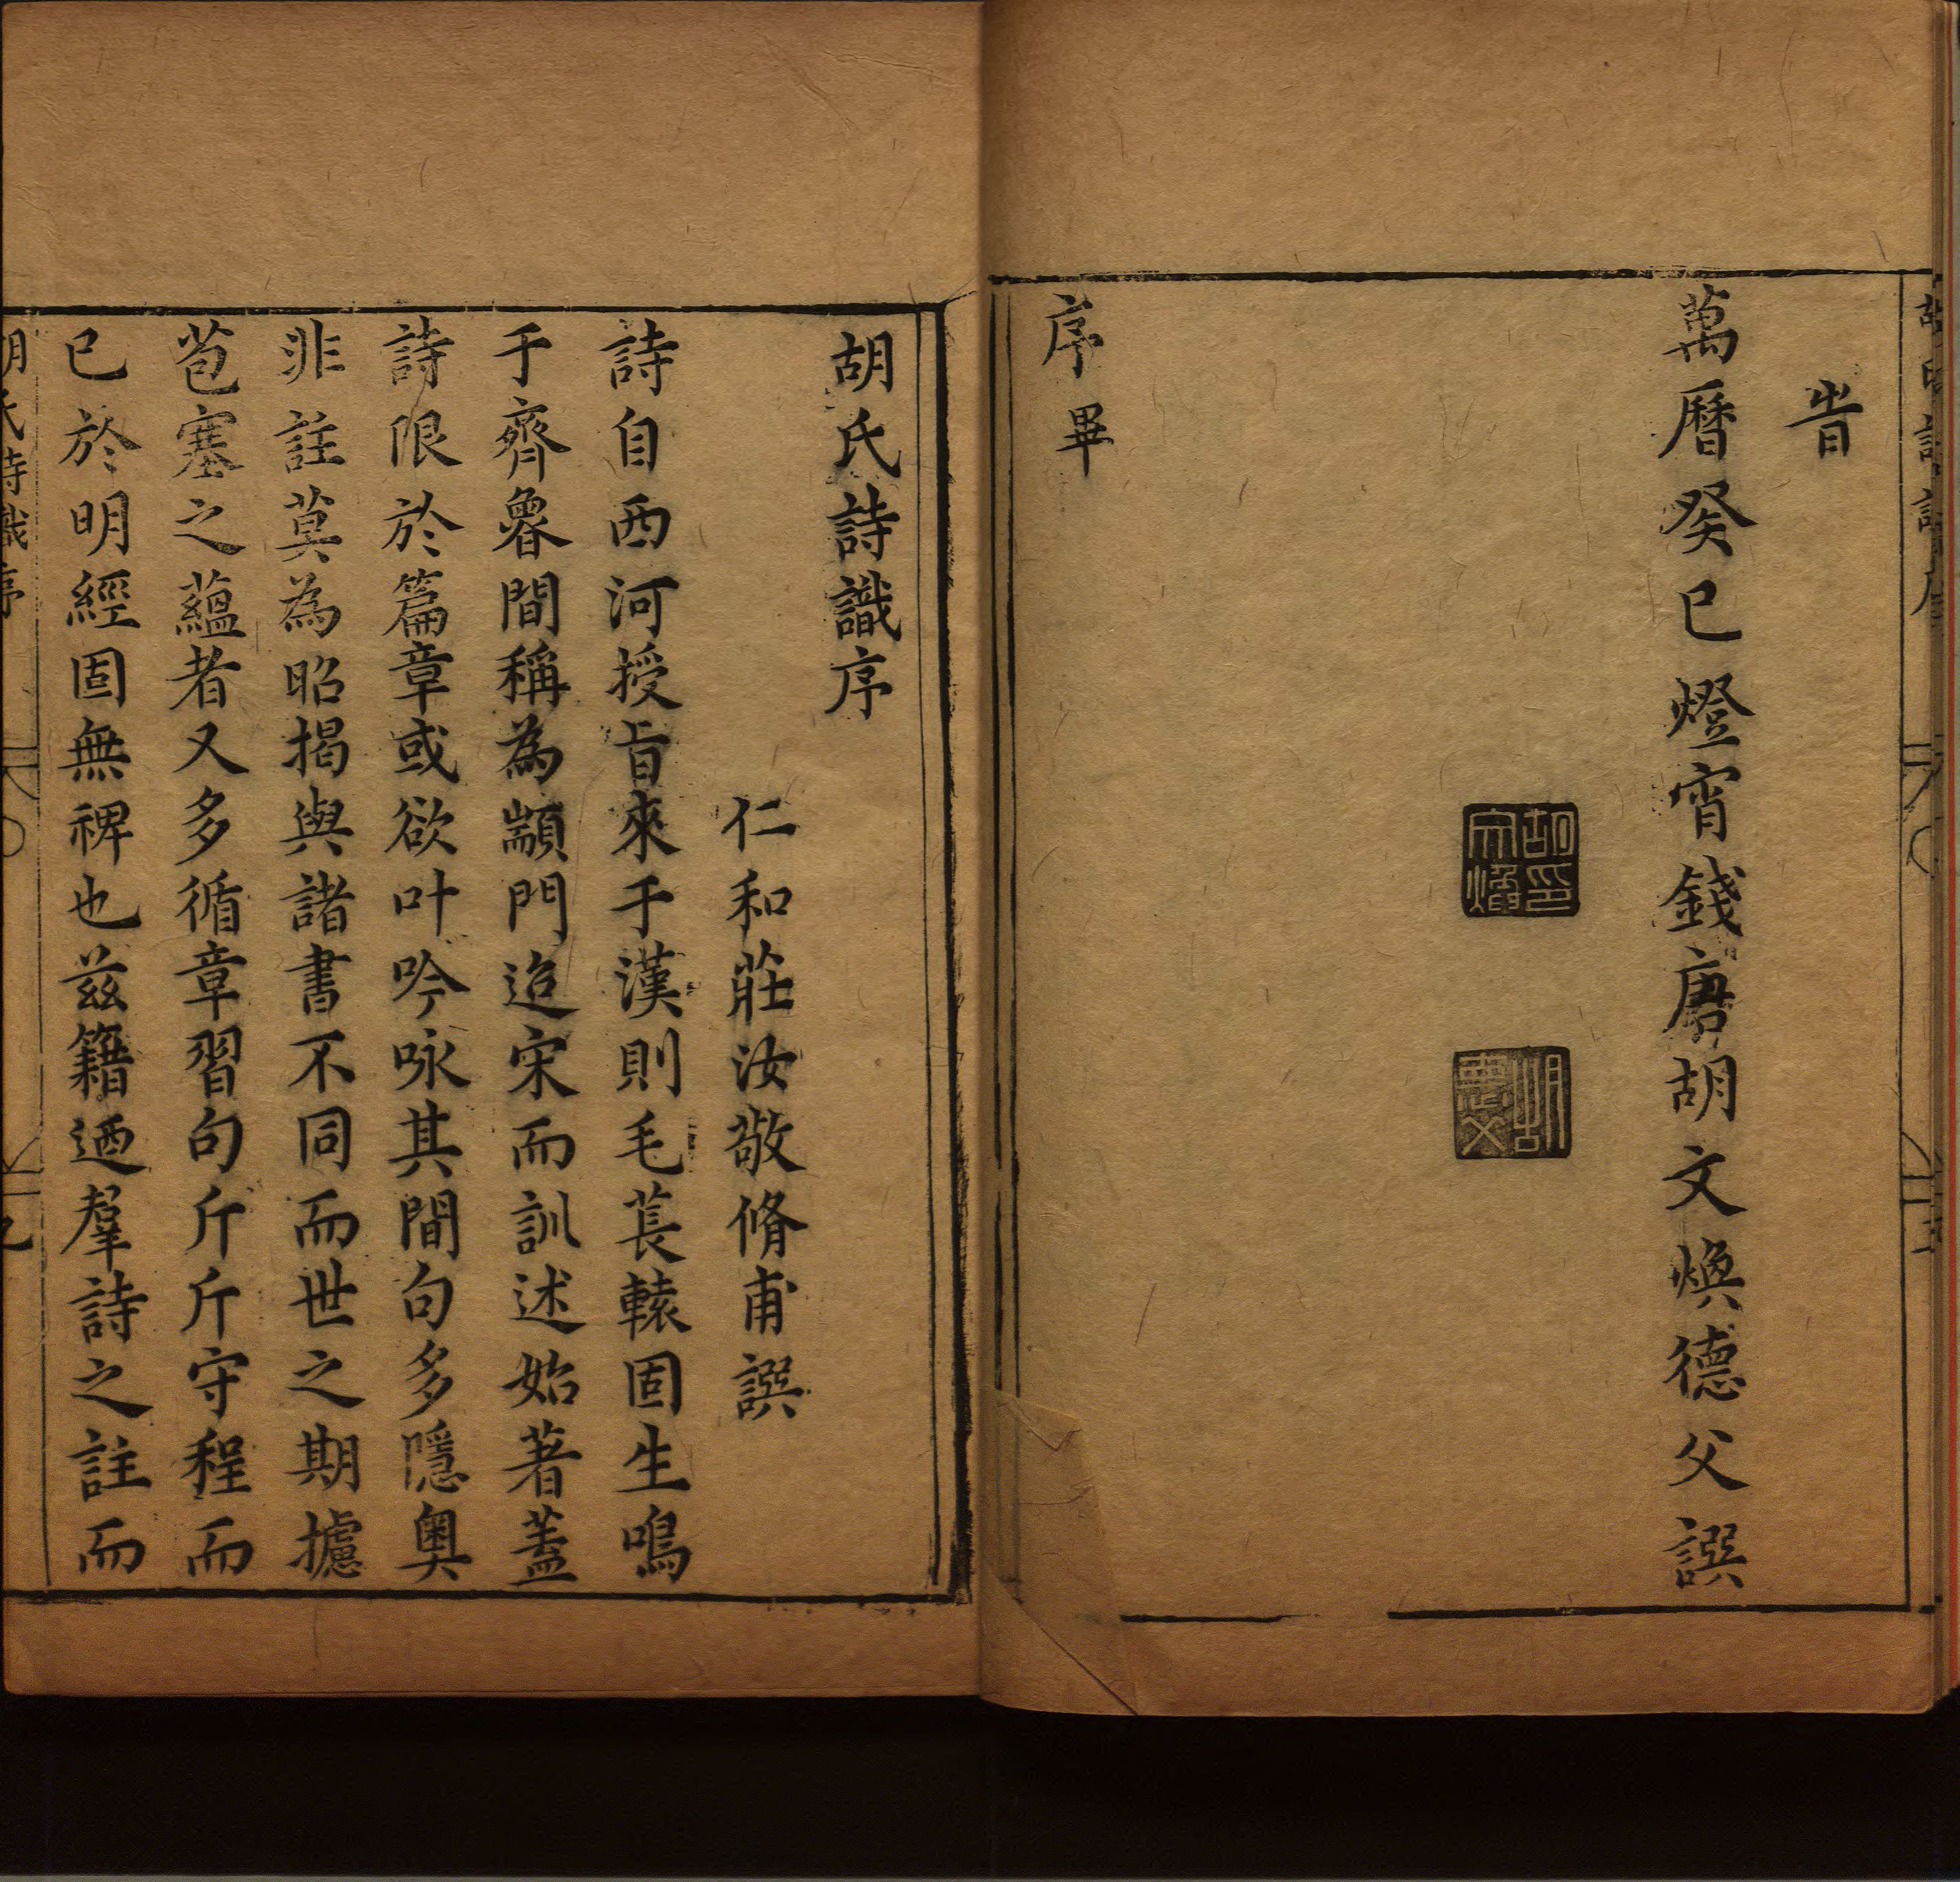 旹
萬曆癸巳燈宵錢唐胡文煥德父譔
序畢
胡氏詩識序
仁和莊汝敬脩甫譔
詩自西河授旨來于漢則毛萇轅固生鳴
于齊魯間稱為顓門迨宋而訓述始著蓋
詩限於篇章或欲叶吟咏其間句多隱奧
非註莫為昭揭與諸書不同而世之期攄
苞塞之蘊者又多循章習句斤斤守程而
已於明經固無裨也茲籍迺羣詩之註而
胡氏詩識序